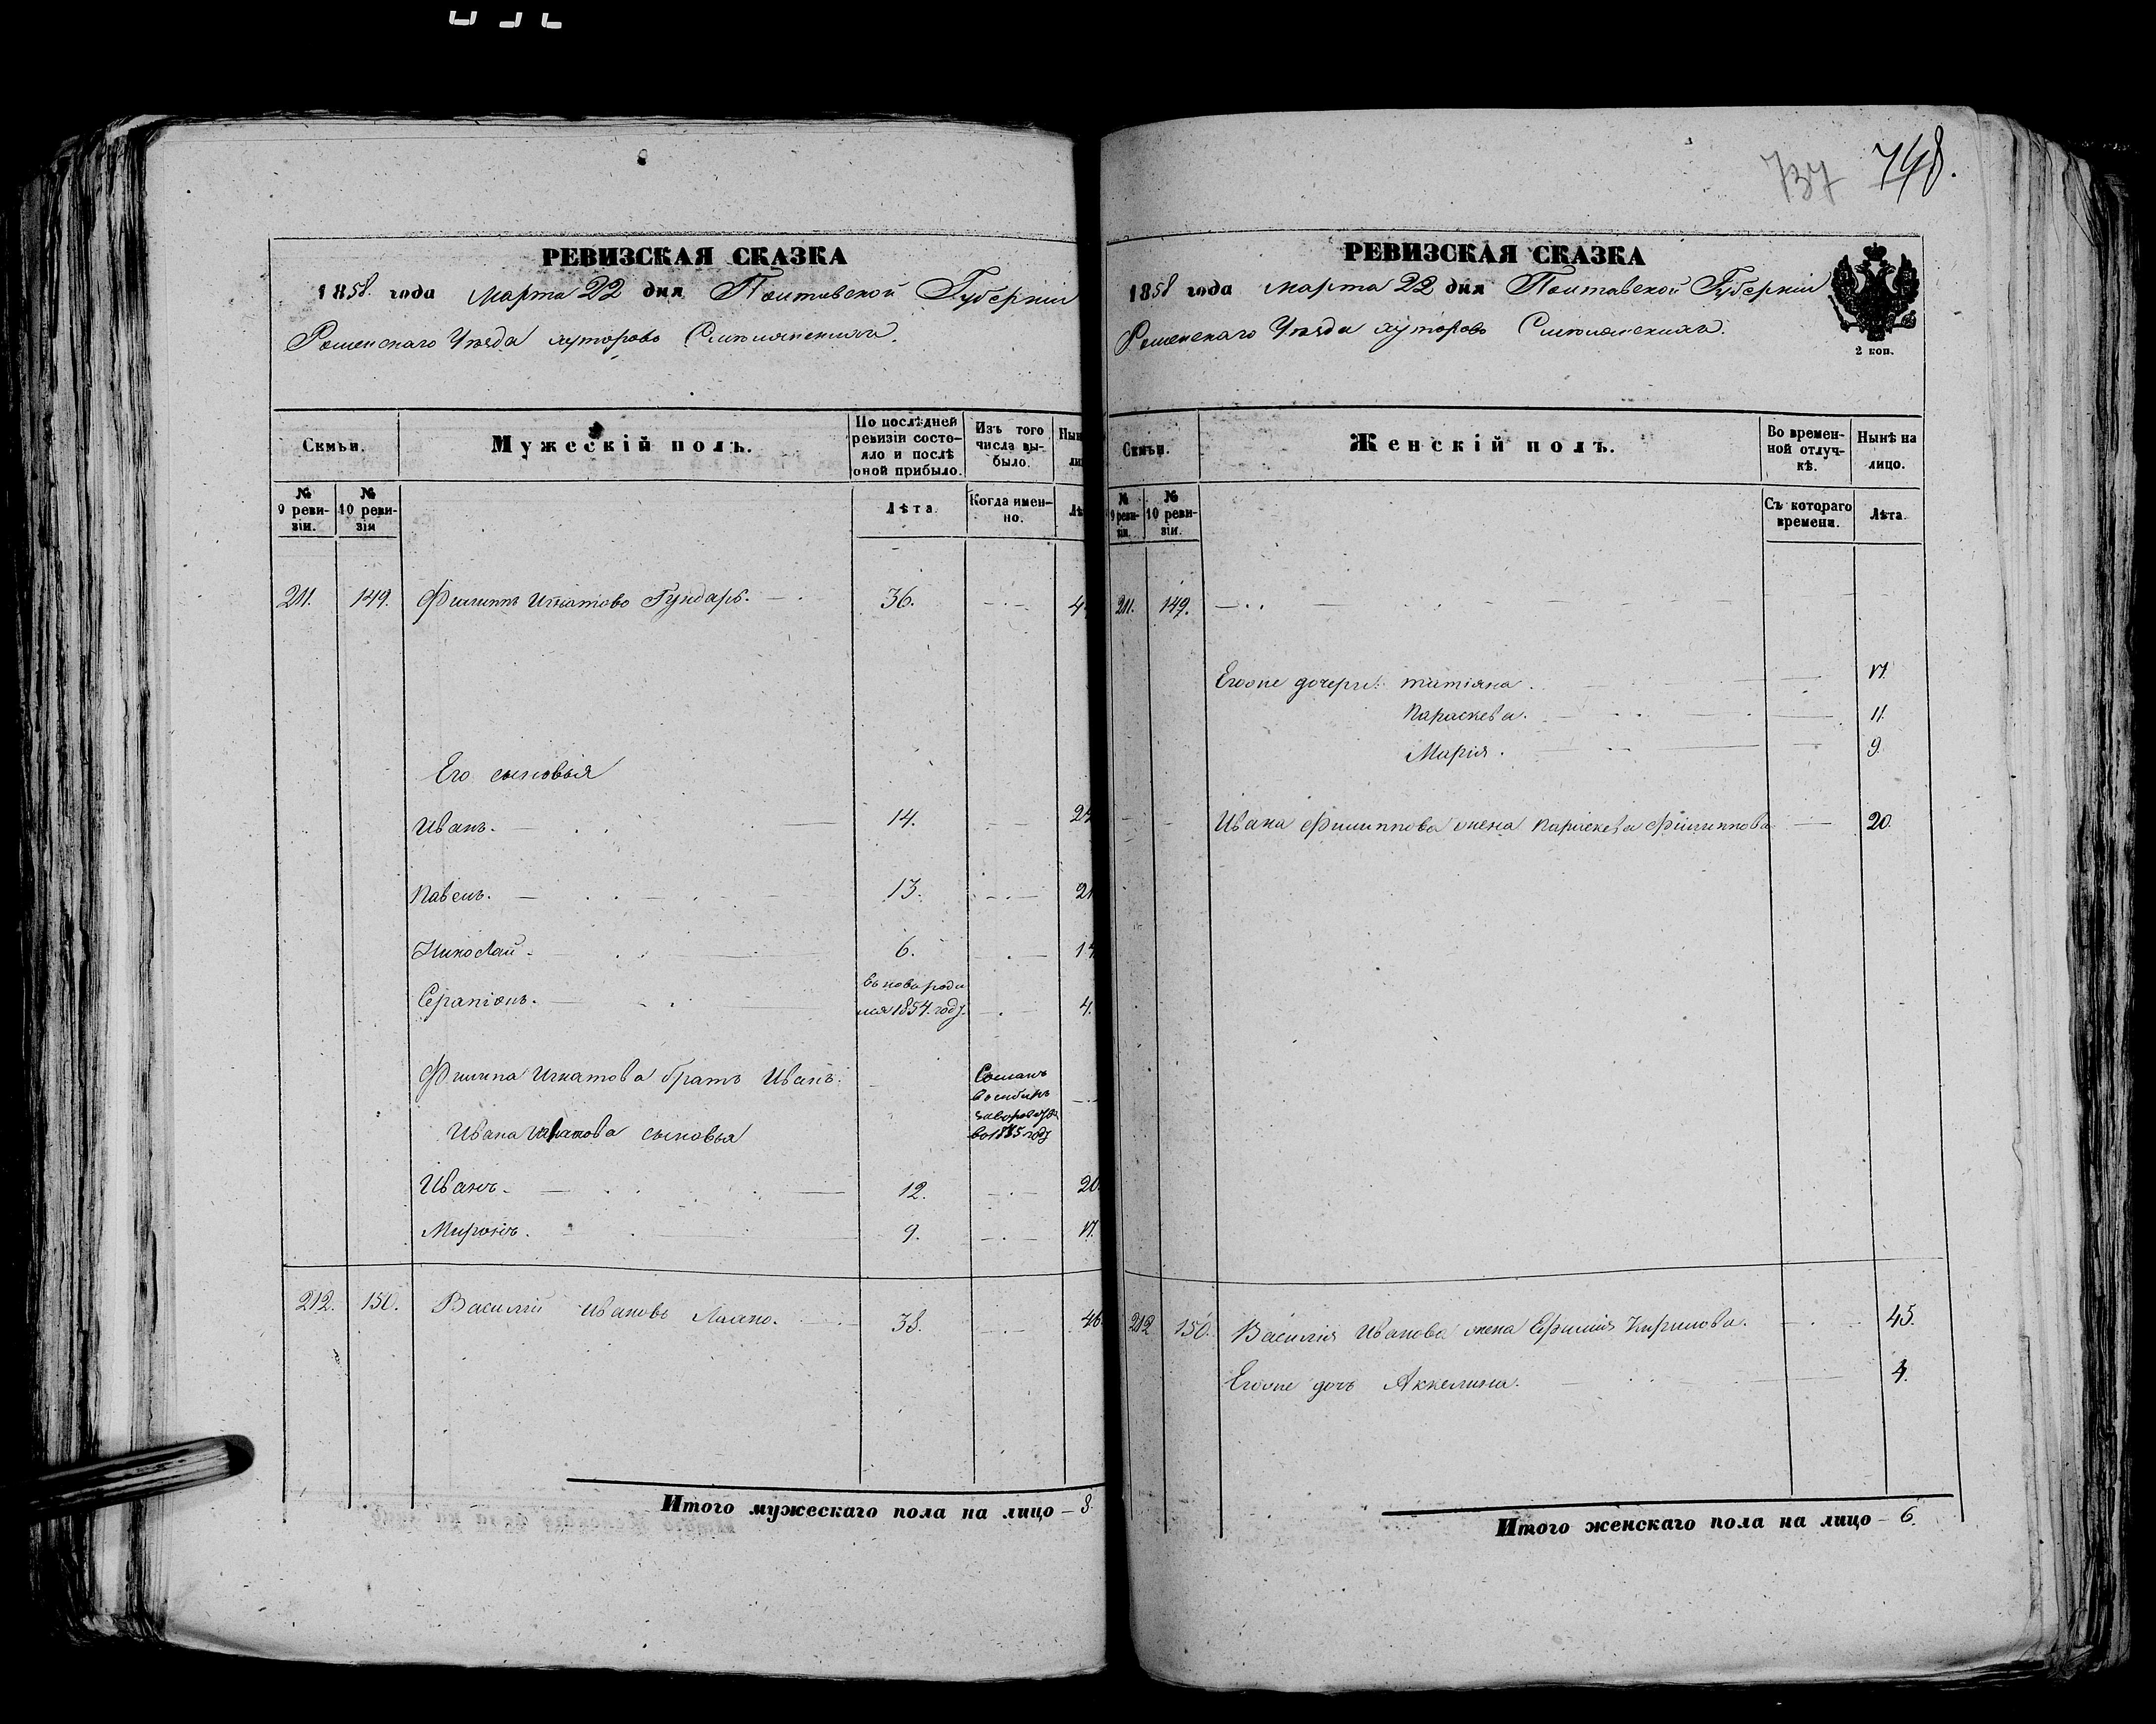 737 748.
РЕВИЗСКАЯ СКАЗКА
1858. года Марта 22 дня Полтавской Губерніи
Роменскаго Уѣзда хуторовъ
Семьи.
Мужескій полъ.
По послѣдней ревизіи состояло и послѣ оной прибыло.
Изъ того числа выбыло.
№ 9 ревизіи.
№ 10 ревизіи
Лѣта.
Когда именно.
211. 149. Филиппъ Игнатовъ Гундарь. 36.
Его сыновья
Иванъ. 14. 24
Павелъ. 13. 21
Николай. 6. 14
вновь роди
Серапіонъ. лся 1854. году. 4.
Филипа Игнатова братъ Иванъ.
Ивана Игнатова сыновья
Иванъ. 12. 20.
Миронъ. 9. 17.
212. 150. Василій Ивановъ 38. 46
Итого мужескаго пола на лицо — 8.
РЕВИЗСКАЯ СКАЗКА
1858 года Марта 22 дня Полтавской Губерніи
2 коп.
Роменскаго Уѣзда хуторовъ
Семьи.
Женскій полъ.
Во временной отлучкѣ.
Нынѣ на лицо.
№ 9 ревизіи.
№ 10 ревизіи.
Съ котораго времени.
Лѣта.
211. 149.
Егоже дочери: Татіяна. 17.
Параскева. 11.
Марія. 9.
Ивана Филиппова жена Параскева Филиппова 20.
212 150. Василія Иванова жена Ефимія Кирилова. 45.
Егоже дочь Аккелина. 4.
Итого женскаго пола на лицо — 6.